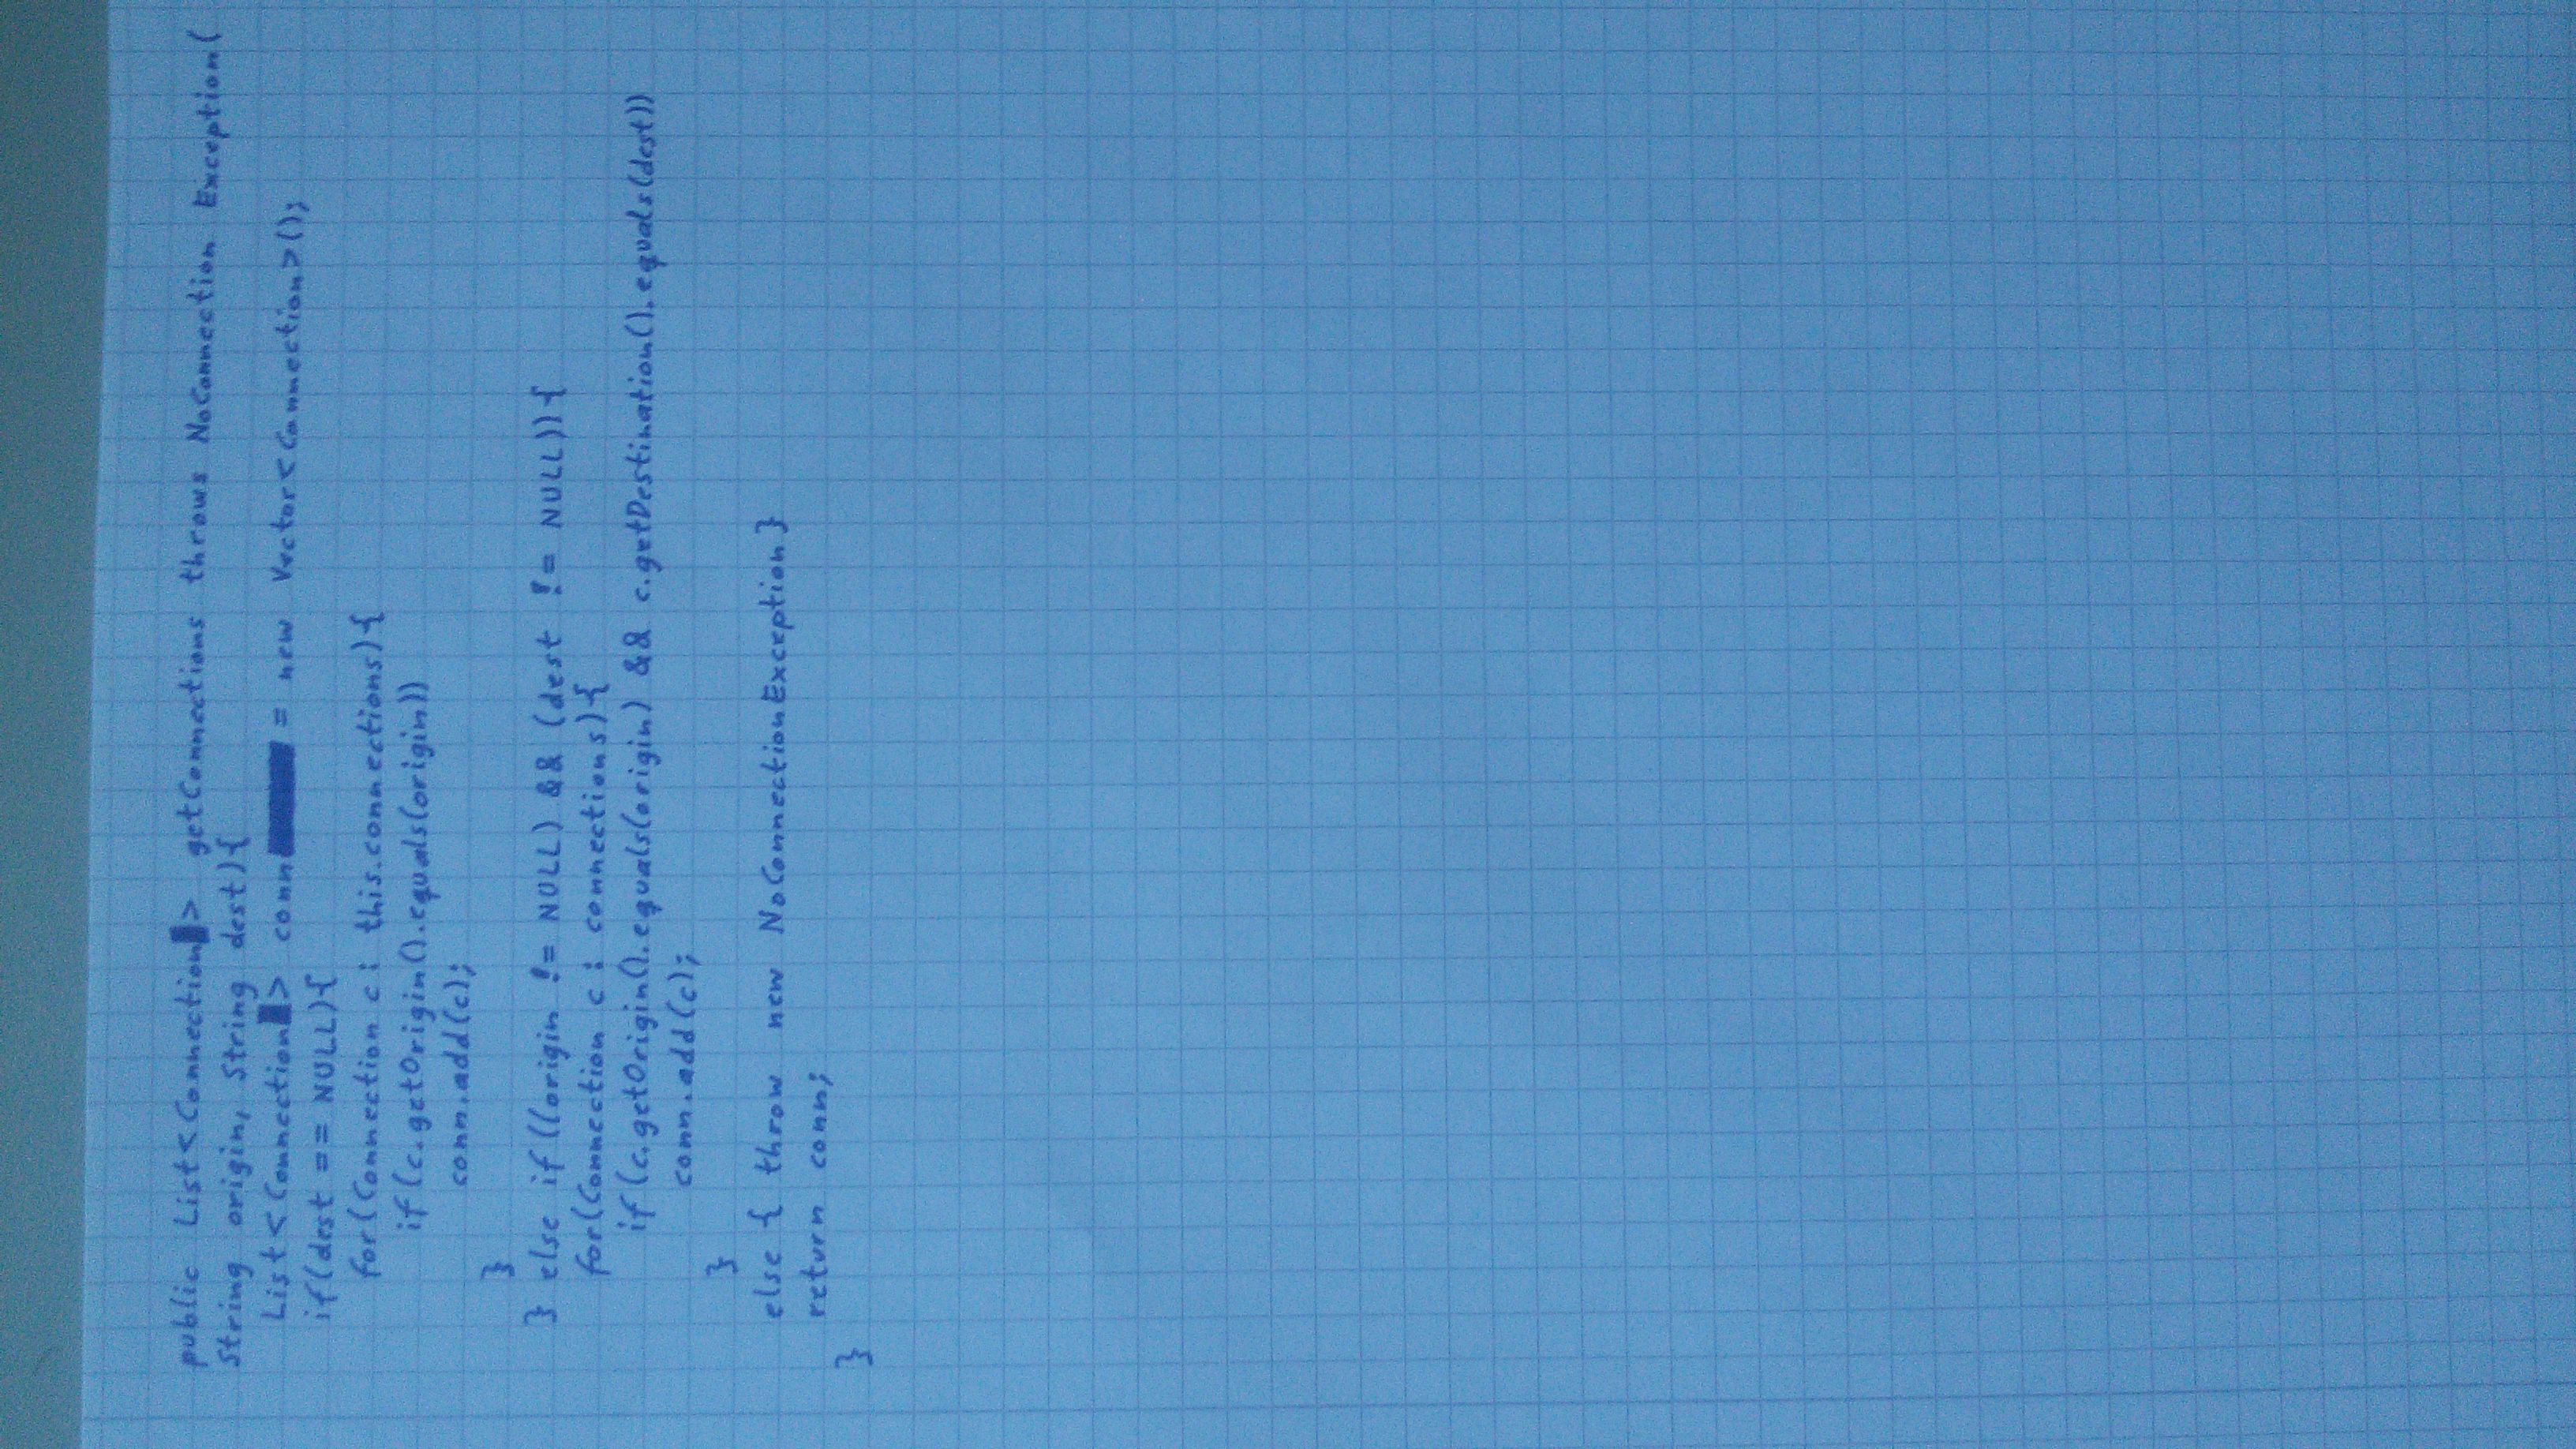 public List<Connection> getConnections throws NoConnection Exception(
String origin, String dest){
List<Connection> conn = new Vector<Connection>();
if(dest == NULL){
for(Connection c: this.connections){
if(c.getOrigin().equals(origin))
conn.add(c);
}
} else if((origin != NULL) && (dest != NULL)){
for(Connection c: connections){
if(c.getOrigin().equals(origin) && c.getDestination().equals(dest))
conn.add(c);
}
else { throw new NoConnectionException}
return conn;
}